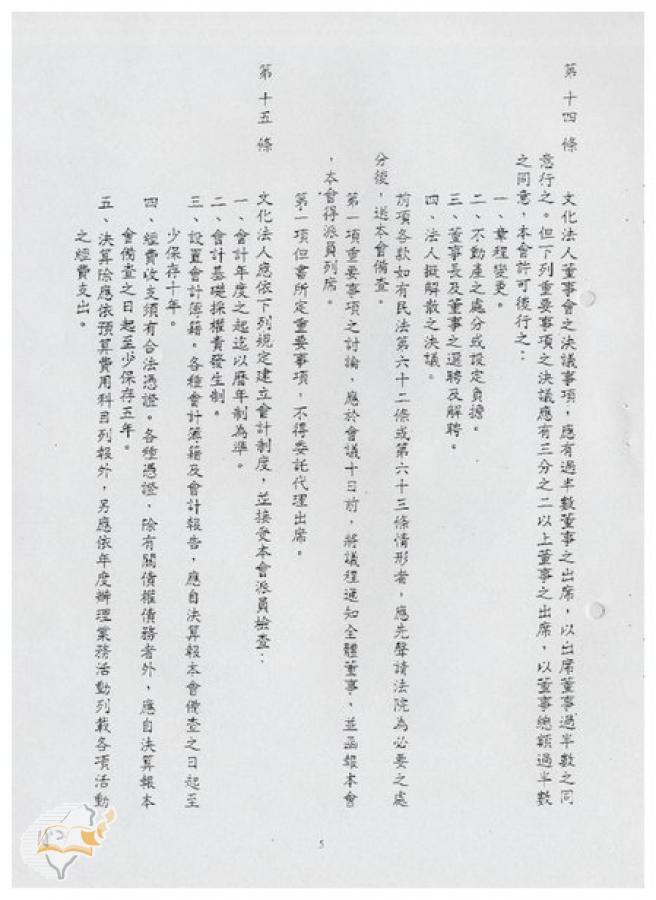 第十四條
文化法人董事會之決議事項，應有過半數董事之出席，以出席董事過半數之同
意行之。但下列重要事項之決議應有三分之二以上董事之出席，以董事總額過半數
之同意，本會許可後行之：
一、章程變更。
二、不動產之處分或設定負擔。
三、董事長及董事之選聘及解聘。
四、法人擬解散之決議。
前項各款如有民法第六十二條或第六十三條情形者，應先聲請法院為必要之處
分後，送本會備查。
第一項重要事項之討論，應於會議十日前，將議程通知全體董事，並函報本會
，本會得派員列席。
第一項但書所定重要事項，不得委託代理出席。
第十五條
文化法人應依下列規定建立會計制度，並接受本會派員檢查：
一、會計年度之起迄以曆年制為準。
二、會計基礎採權責發生制。
三、設置會計簿籍。各種會計簿籍及會計報告，應自決算報本會備查之日起至
少保存十年。
四、經費收支須有合法憑證。各種憑證，除有關債權債務者外，應自決算報本
會備查之日起至少保存五年。
五、決算除應依預算費用科目列報外，另應依年度辦理業務活動列載各項活動
之經費支出。
5